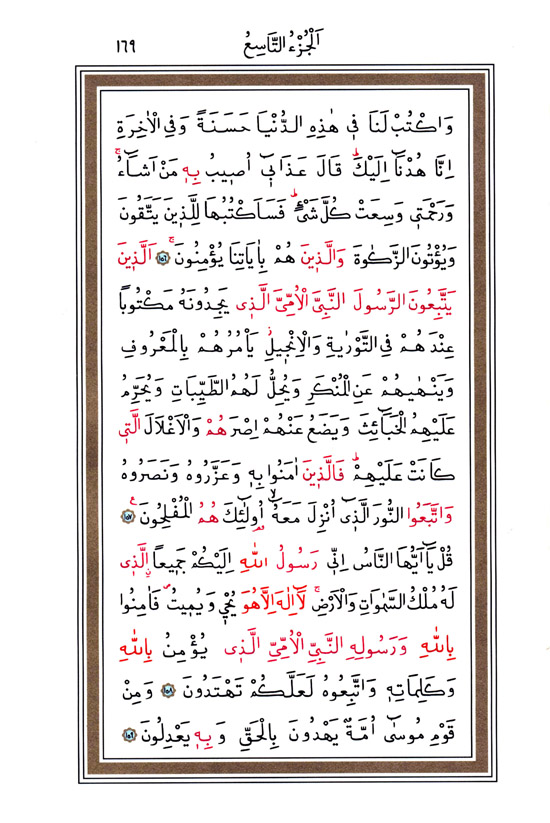 اَلْجُزْءُ التَّاسِعُ ١٦٩
وَاكْتُبْ لَنَا فٖى هٰذِهِ الدُّنْيَا حَسَنَةً وَفِى الْاٰخِرَةِ
اِنَّا هُدْنَٓا اِلَيْكَؕ قَالَ عَذَابٖٓى اُصٖيبُ بِهٖ مَنْ اَشَٓاءُۚ
وَرَحْمَتٖى وَسِعَتْ كُلَّ شَىْءٍؕ فَسَاَكْتُبُهَا لِلَّذٖينَ يَتَّقُونَ
وَيُؤْتُونَ الزَّكٰوةَ وَالَّذٖينَ هُمْ بِاٰيَاتِنَا يُؤْمِنُونَۚ ﴿١٥٦﴾ اَلَّذٖينَ
يَتَّبِعُونَ الرَّسُولَ النَّبِىَّ الْاُمِّىَّ الَّذٖى يَجِدُونَهُ مَكْتُوبًا
عِنْدَهُمْ فِى التَّوْرٰيةِ وَالْاِنْجٖيلِؗ يَاْمُرُهُمْ بِالْمَعْرُوفِ
وَيَنْهٰيهُمْ عَنِ الْمُنْكَرِ وَيُحِلُّ لَهُمُ الطَّيِّبَاتِ وَيُحَرِّمُ
عَلَيْهِمُ الْخَبَٓائِثَ وَيَضَعُ عَنْهُمْ اِصْرَهُمْ وَالْاَغْلَالَ الَّتٖى
كَانَتْ عَلَيْهِمْؕ فَالَّذٖينَ اٰمَنُوا بِهٖ وَعَزَّرُوهُ وَنَصَرُوهُ
وَاتَّبَعُوا النُّورَ الَّذٖٓى اُنْزِلَ مَعَهُٓۙ اُو۬لٰٓئِكَ هُمُ الْمُفْلِحُونَࣖ ﴿١٥٧﴾
قُلْ يَٓا اَيُّهَا النَّاسُ اِنّٖى رَسُولُ اللّٰهِ اِلَيْكُمْ جَمٖيعًاۨ الَّذٖى
لَهُ مُلْكُ السَّمٰوَاتِ وَالْاَرْضِۚ لَٓا اِلٰهَ اِلَّا هُوَ يُحْيٖى وَيُمٖيتُࣕ فَاٰمِنُوا
بِاللّٰهِ وَرَسُولِهِ النَّبِىِّ الْاُمِّىِّ الَّذٖى يُؤْمِنُ بِاللّٰهِ
وَكَلِمَاتِهٖ وَاتَّبِعُوهُ لَعَلَّكُمْ تَهْتَدُونَ ﴿١٥٨﴾ وَمِنْ
قَوْمِ مُوسٰٓى اُمَّةٌ يَهْدُونَ بِالْحَقِّ وَبِهٖ يَعْدِلُونَ ﴿١٥٩﴾